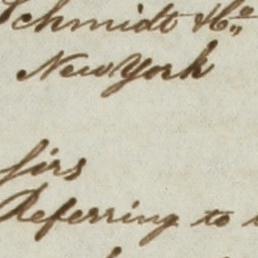 Schmidt & Co.
New York
Sirs
Referring to